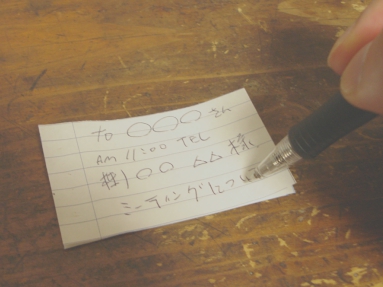 to ○○○さん
AM 11:00 TEL
(株)○○ △△様
ミーティングについ